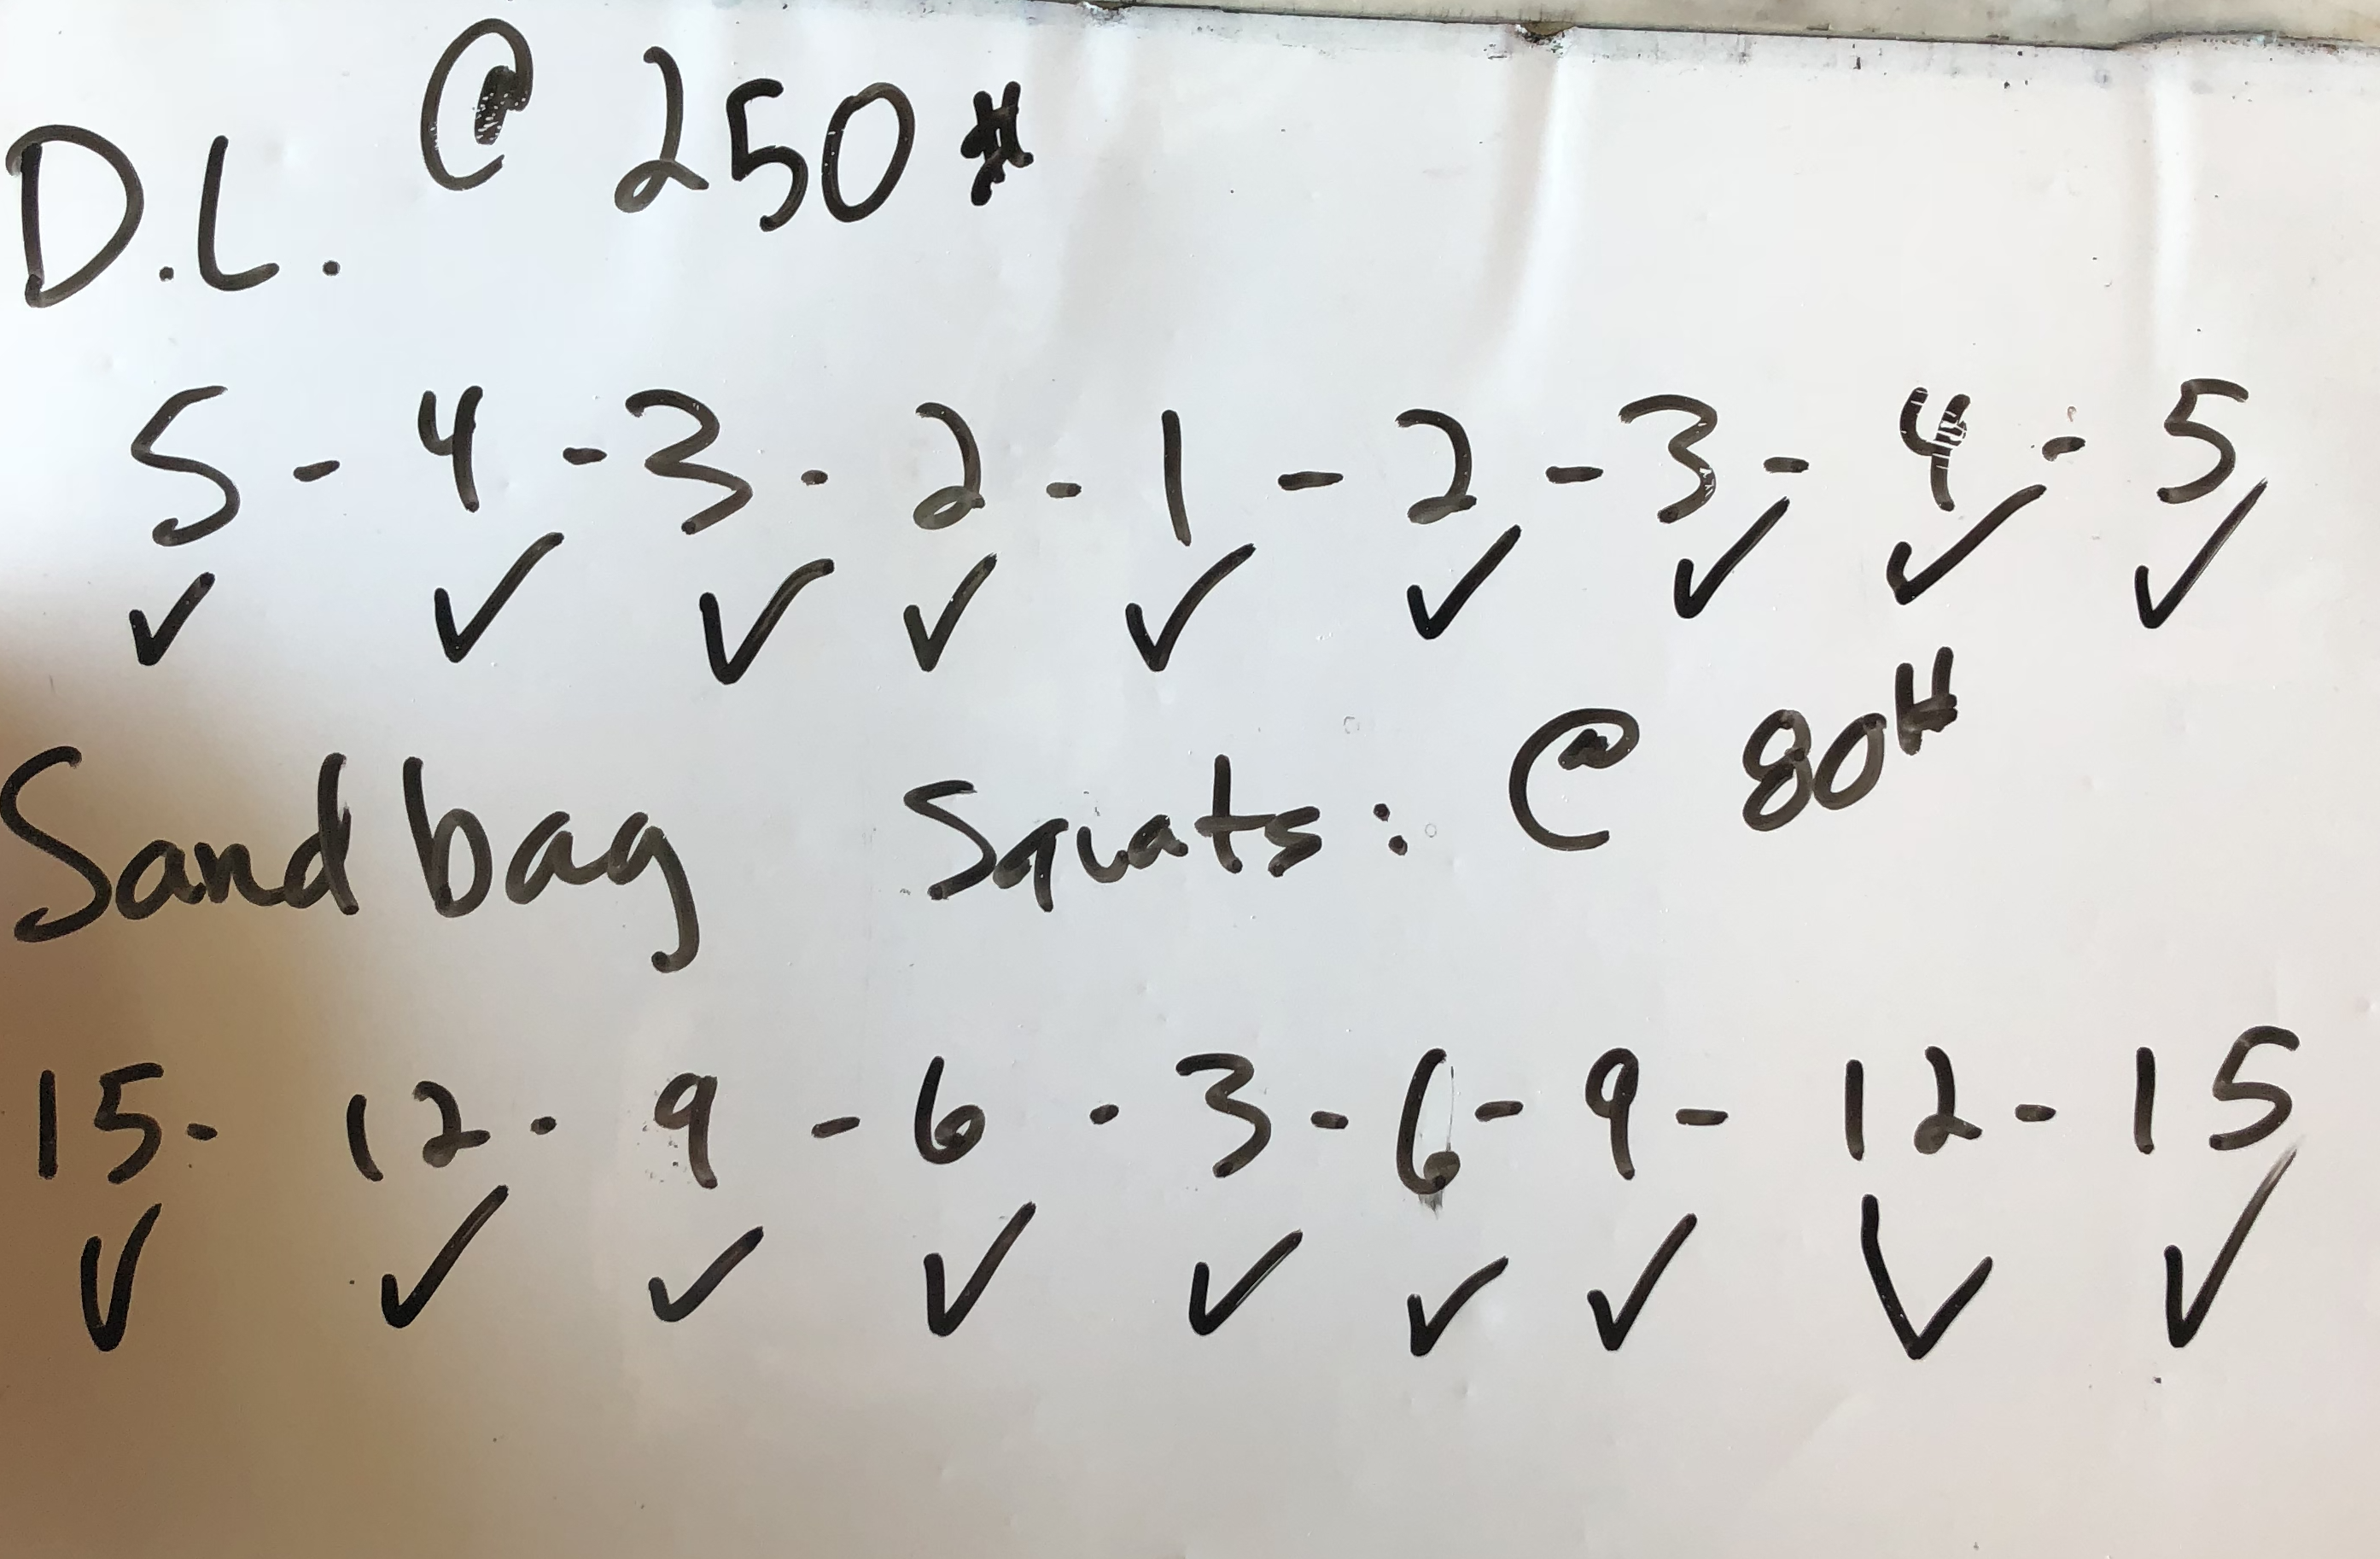 D.L. @ 250#
5 - 4 - 3 - 2 - 1 - 2 - 3 - 4 - 5
✓ ✓ ✓ ✓ ✓ ✓ ✓ ✓ ✓
Sandbag Squats: @ 80#
15 - 12 - 9 - 6 - 3 - 6 - 9 - 12 - 15
✓ ✓ ✓ ✓ ✓ ✓ ✓ ✓ ✓